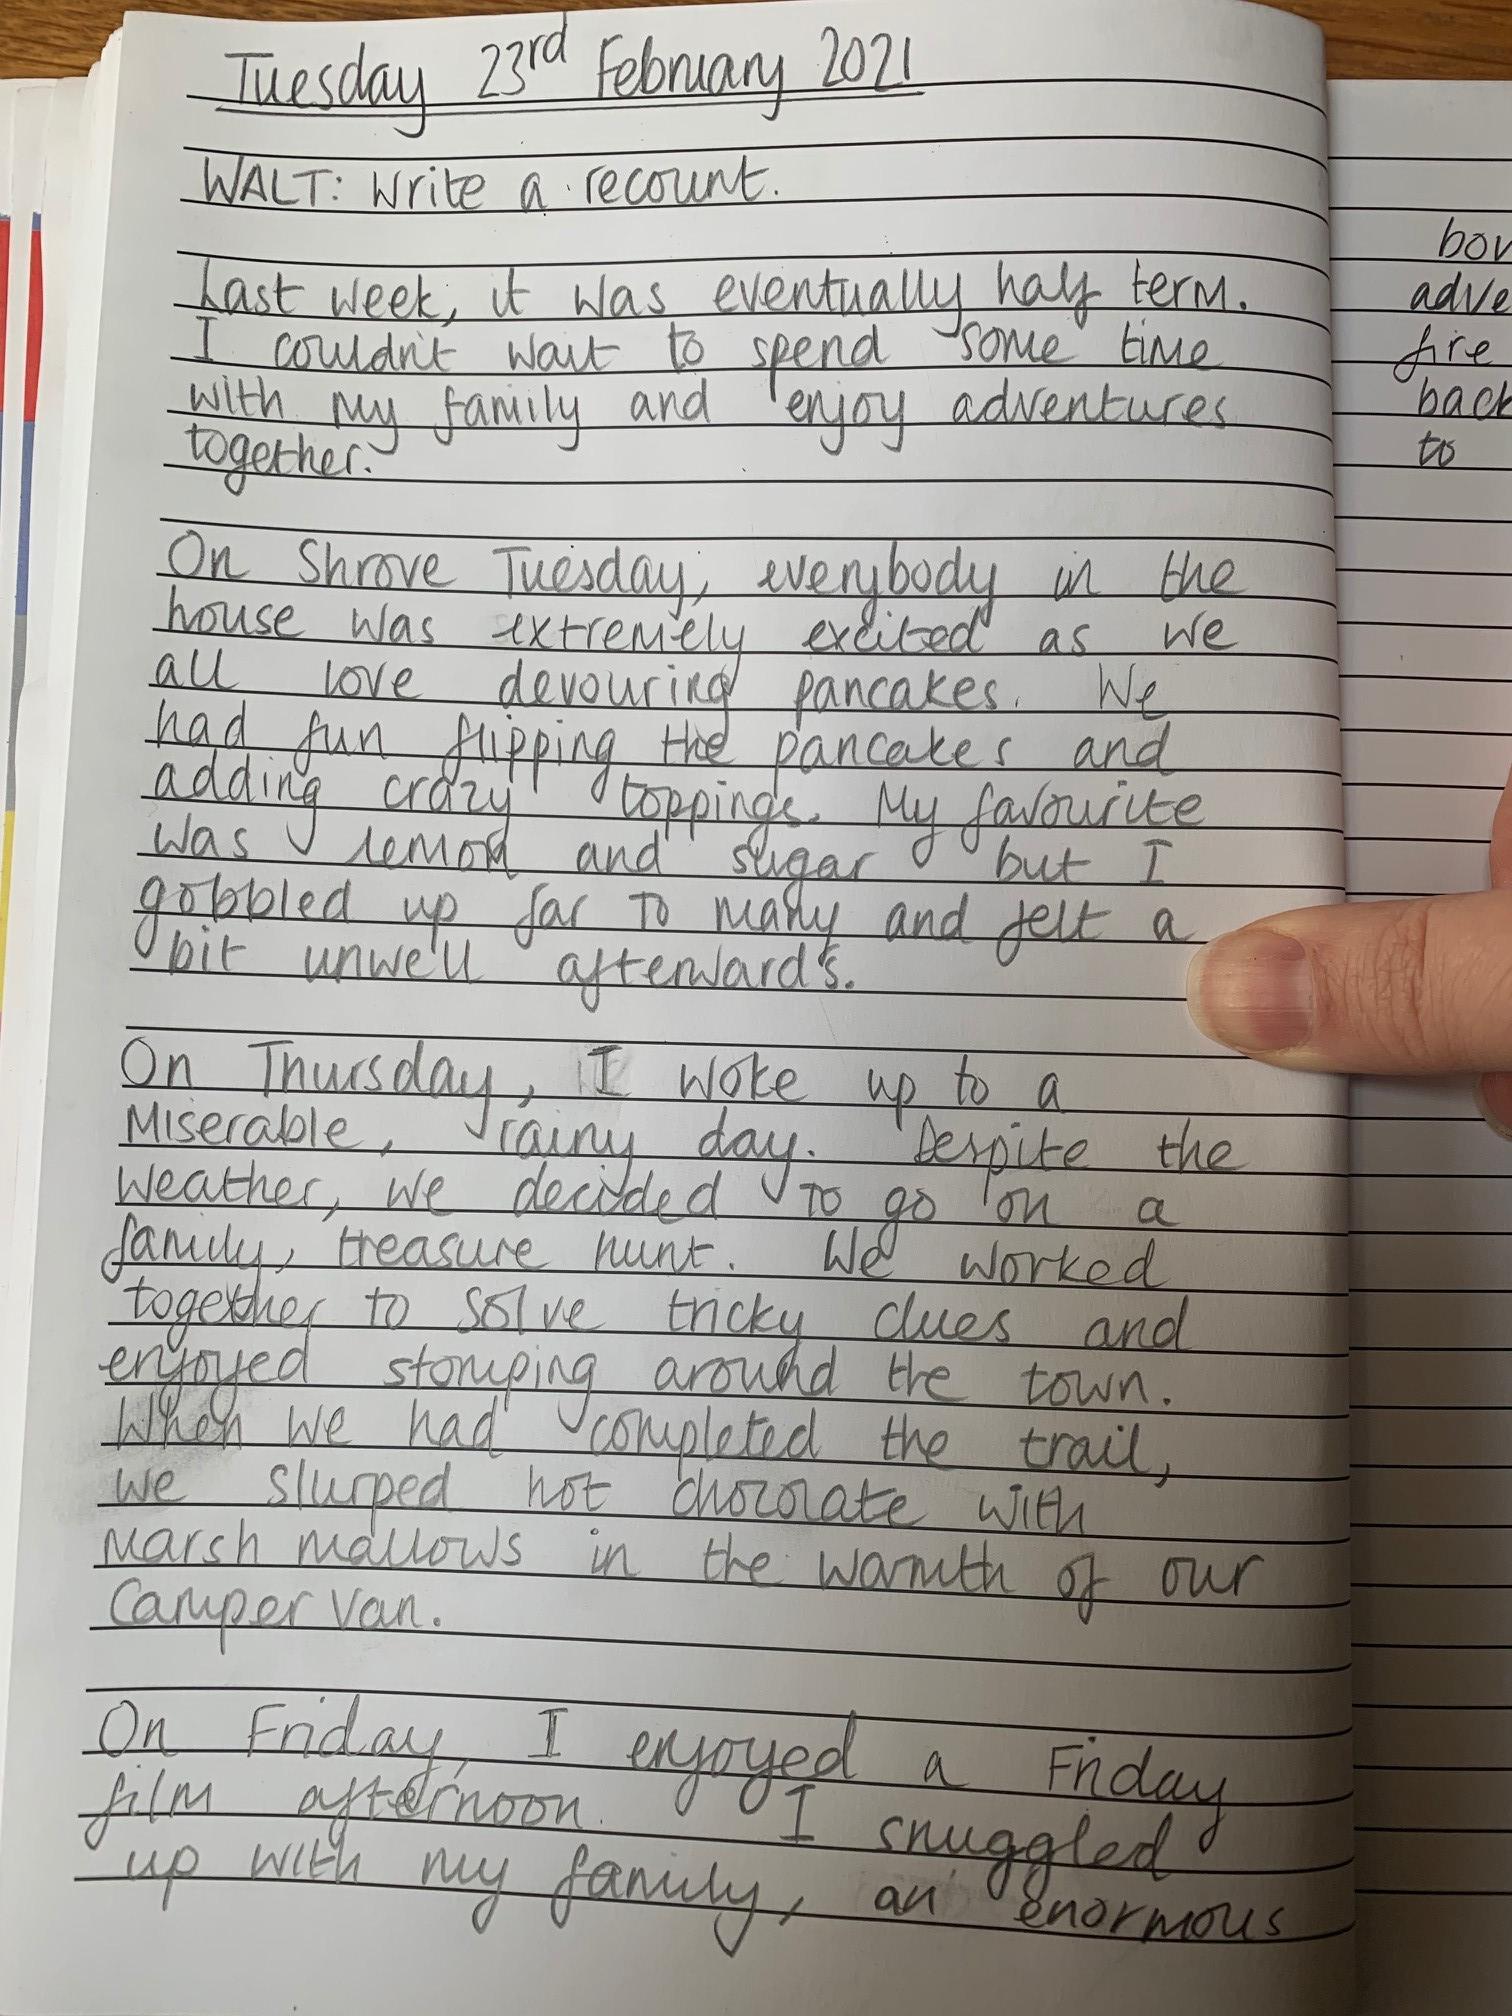 Tuesday 23rd February 2021
WALT: Write a recount.
Last week, it was eventually half term.
I couldn't wait to spend some time
with my family and enjoy adventures
together.
On Shrove Tuesday, everybody in the
house was extremely excited as we
all love devouring pancakes. We
had fun flipping the pancakes and
adding crazy toppings. My favourite
was lemon and sugar but I
gobbled up far to many and felt a
bit unwell afterwards.
On Thursday, I woke up to a
miserable, rainy day. Despite the
weather, we decided to go on a
family, treasure hunt. We worked
together to solve tricky clues and
enjoyed stomping around the town.
When we had completed the trail,
we slurped hot chocolate with
marsh mallows in the warmth of our
Camper van.
On Friday, I enjoyed a Friday
film afternoon. I snuggled
up with my family, an enormous
adve
fire
back
to